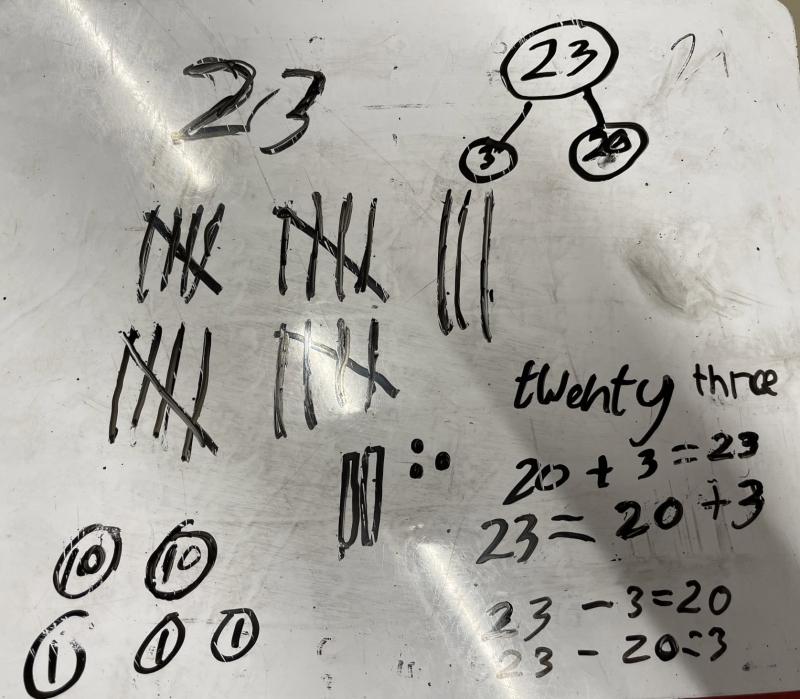 23
23
3
20
twenty three
20 + 3 = 23
23 = 20 + 3
10 10
1 1 1
23 - 3 = 20
23 - 20 = 3